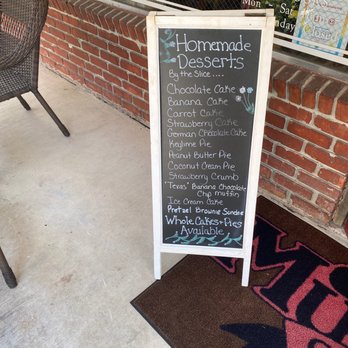 Homemade
Desserts
By the Slice....
Chocolate Cake
Banana Cake
Carrot Cake
Strawberry Cake
German Chocolate Cake
Keylime Pie
Peanut Butter Pie
Coconut Cream Pie
Strawberry Crumb
"Texas" Banana Chocolate
Chip muffin
Ice Cream Cake
Pretzel Brownie Sundae
Whole Cakes + Pies
Available
Mon
Sat